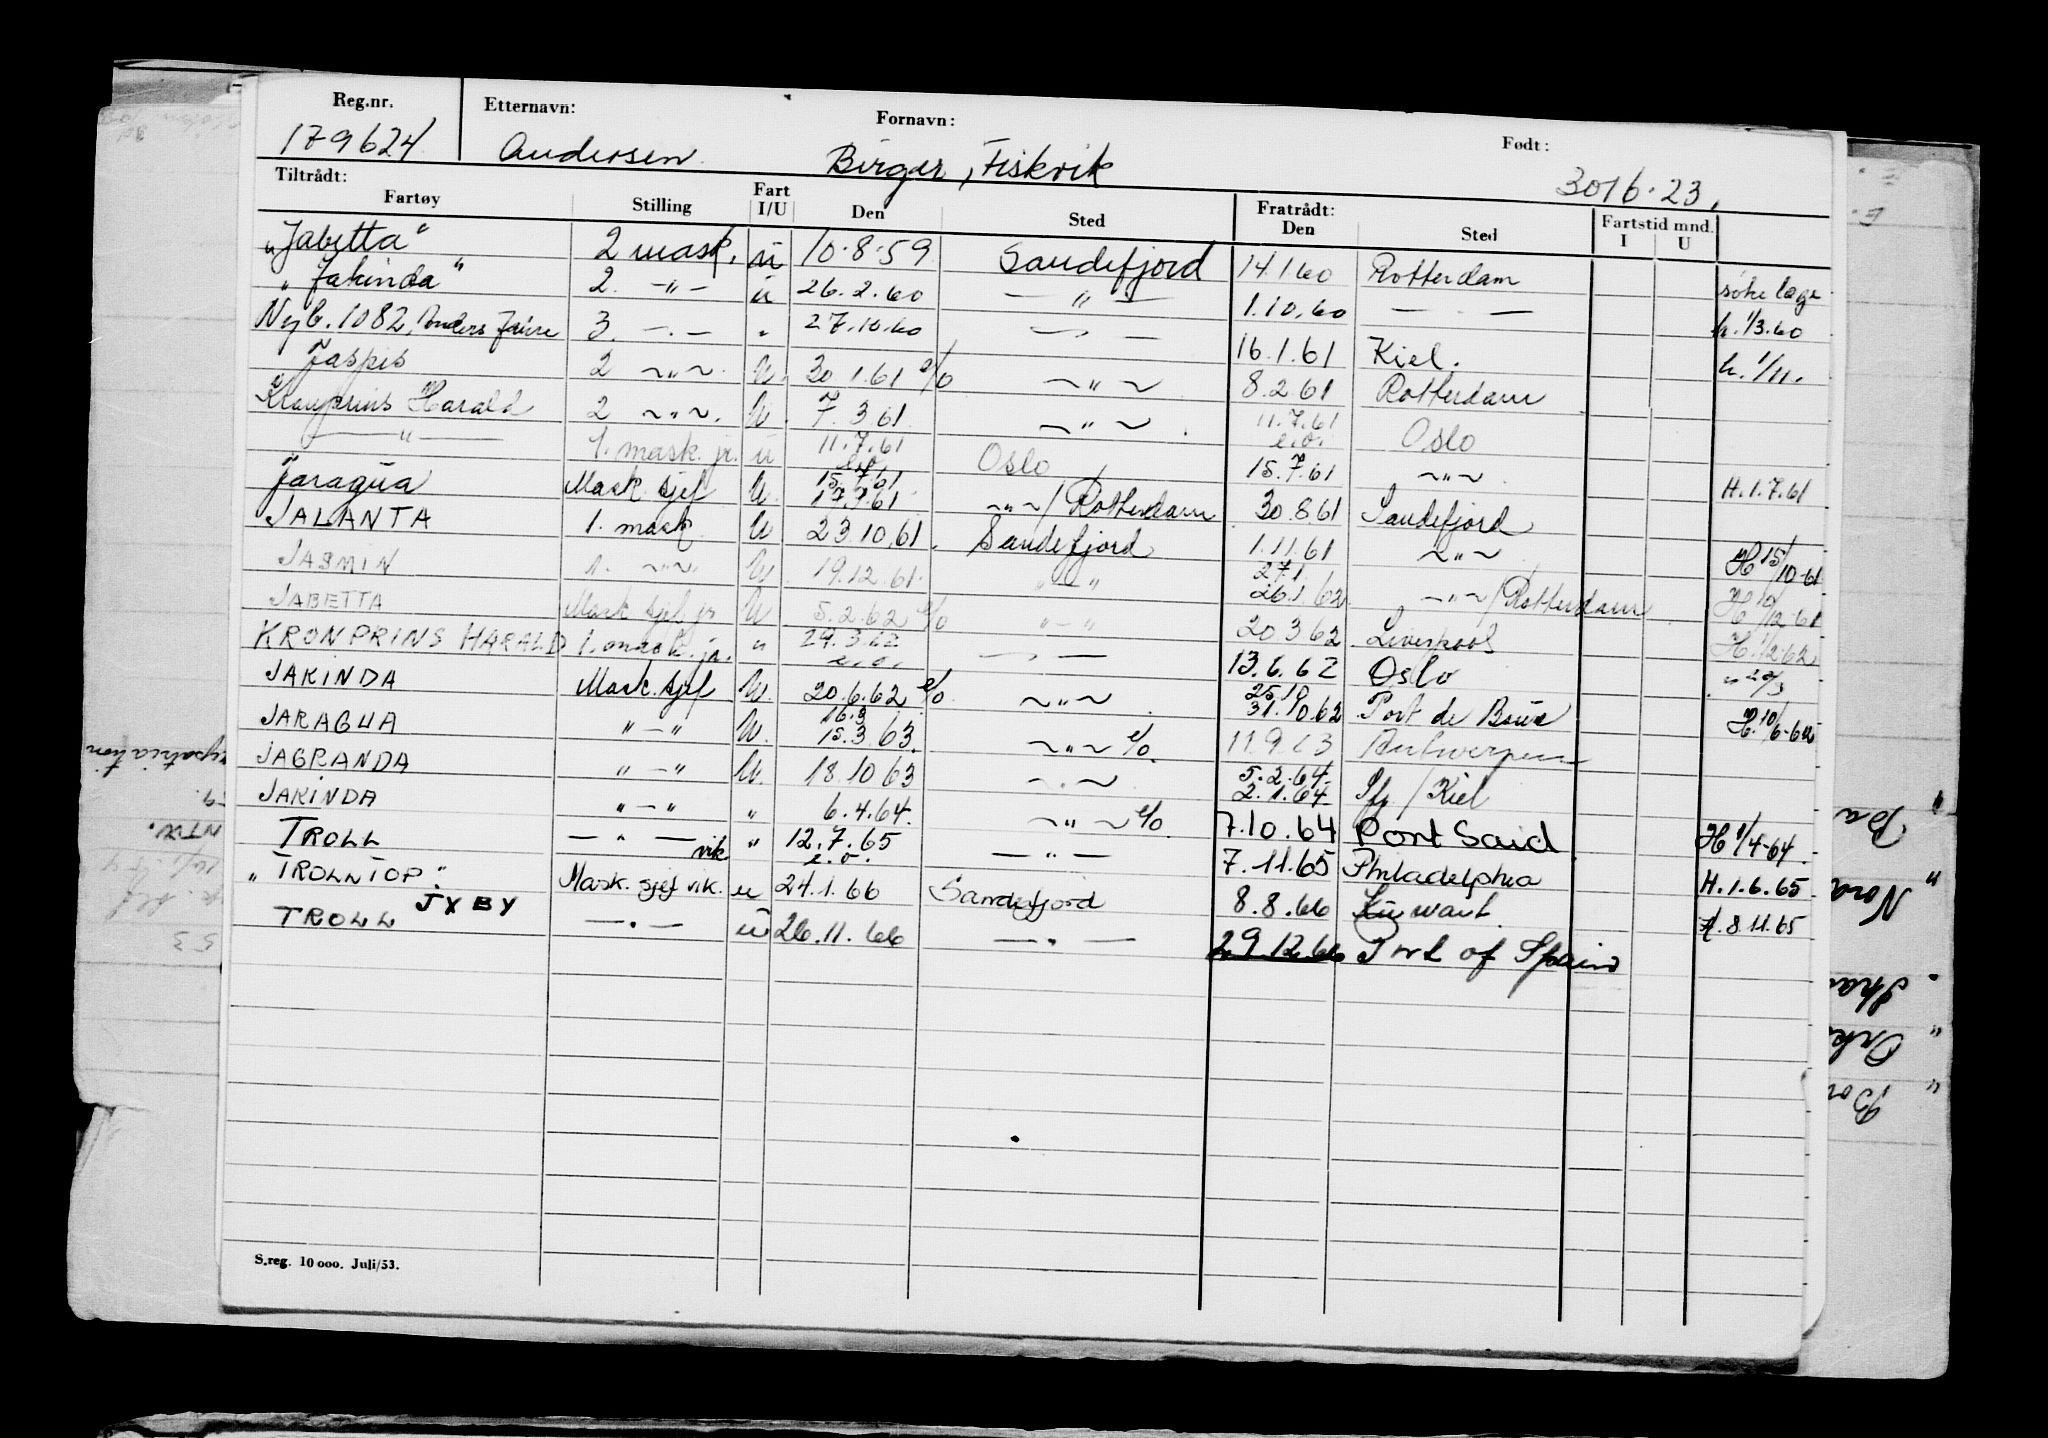 Reg.nr. Etternavn: Fornavn: Født:
179624 Andersen Birger, Fiskvik 30/6-23.
Tiltrådt: Fratrådt:
Fartøy Stilling Fart I/U Den Sted Den Sted Fartstid mnd. I U
"Jabetta" 2 mask. u 10-8-59 Sandefjord 14.1.60 Rotterdam søke lege
"Jakinda" 2. -"- u 26.2.60 — " — 1.10.60 — . — h. 1/3.60
Nyb. 1082, Anders Jahre 3. -.- " 27.10.60 — " — 16.1.61 Kiel. h. 1/11.
Jaspis 2 ~"~ U. 30.1.61 e/o ~"~ 8.2.61 Rotterdam
Kronprins Harald 2 ~"~. U. 7.3.61 ~"~ 11.7.61 e.o. Oslo
—"— 1. mask. jr. u 11.7.61 e.o. Oslo 15.7.61 ~"~ H.1.7.61
Jaragua Mask. sjef U. 15.7.61 17.7.61 ~"~/Rotterdam 30.8.61 Sandefjord
JALANTA 1. mask. U 23.10.61. Sandefjord 1.11.61 ~"~ H 15/10-61
JASMIN 1. ~"~ U. 19.12.61. "-" 27.1 26.1.62 ~"~/Rotterdam H 10/12-61
JABETTA Mask. sjef jr U 5.2.62 e/o "-" 20.3.62 Liverpool H. 1/2-62
KRONPRINS HARALD 1. mask. jr. " 29.3.62 e.o. — " — 13.6.62 Oslo " 20/3
JAKINDA Mask. sjef U. 20.6.62 e/o ~"~ 25.10 31.10.62 Port de Bouc H. 10/6-62
JARAGUA "-" U. 16.3 15.3.63. ~"~ e/o. 11.9.63 Antwerpen
JAGRANDA "-" U. 18.10.63 ~.~ 5.2.64. 2.1.64 Sfj/Kiel
JAKINDA "-" " 6.4.64. ~"~ e/o. 7.10.64 Port Said H 1/4-64.
TROLL — " — vik " 12.7.65 e.o. — " — 7.11.65 Philadelphia H.1.6.65
"TROLLTOP" Mask. sjef vik. u 24.1.66 Sandefjord 8.8.66 Kuwait. H. 8.11.65
TROLL JYBY — . — u 26.11.66 — . — 29.12.66 Port of Spain
S.reg. 10 000. Juli/53.